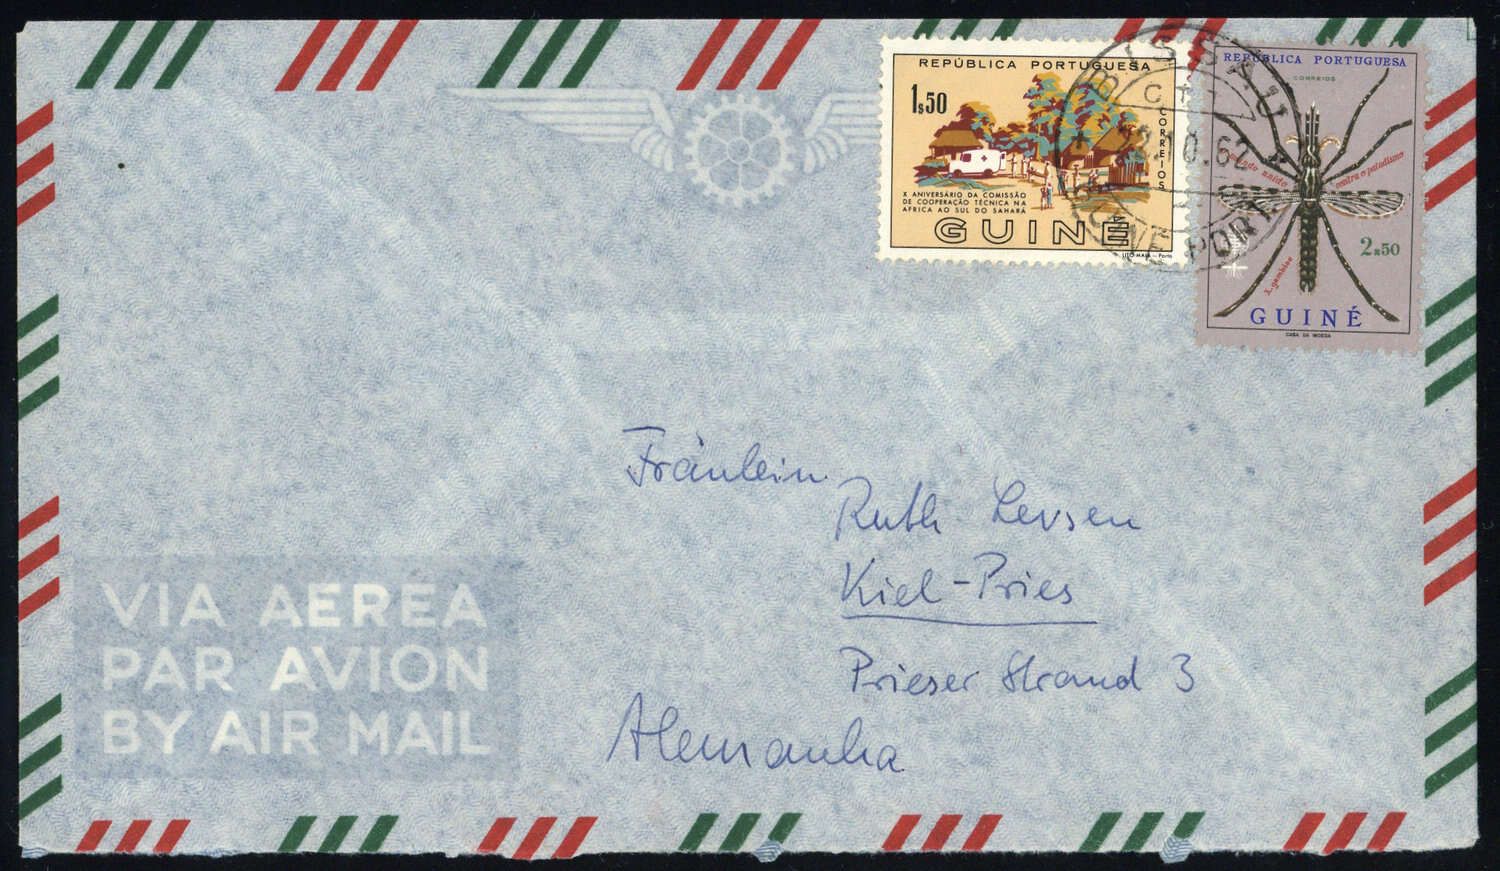 REPÚBLICA PORTUGUESA
1$50
CORREIOS
X ANIVERSÁRIO DA COMISSÃO
DE COOPERAÇÃO TÉCNICA NA
ÁFRICA AO SUL DO SAHARÁ
GUINÉ
LITO MAIA — Porto
REPÚBLICA PORTUGUESA
CORREIOS
mundo unido contra o paludismo
A. gambiae
2$50
GUINÉ
CASA DA MOEDA
BISSAU
10.62
GUINÉ PORT
Fräulein
Ruth Levsen
Kiel-Pries
Prieser Strand 3
Alemanha
VIA AEREA
PAR AVION
BY AIR MAIL